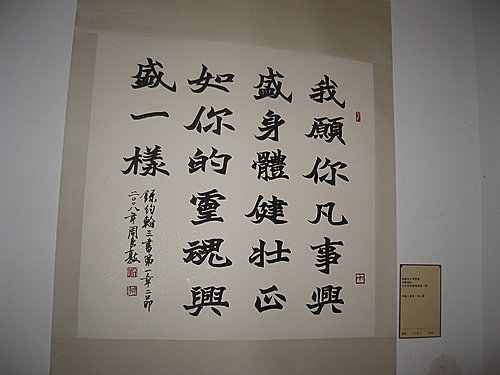 我願你凡事興
盛身體健壯正
如你的靈魂興
盛一樣
錄約翰三書第一章二節
二〇〇八年周良敦